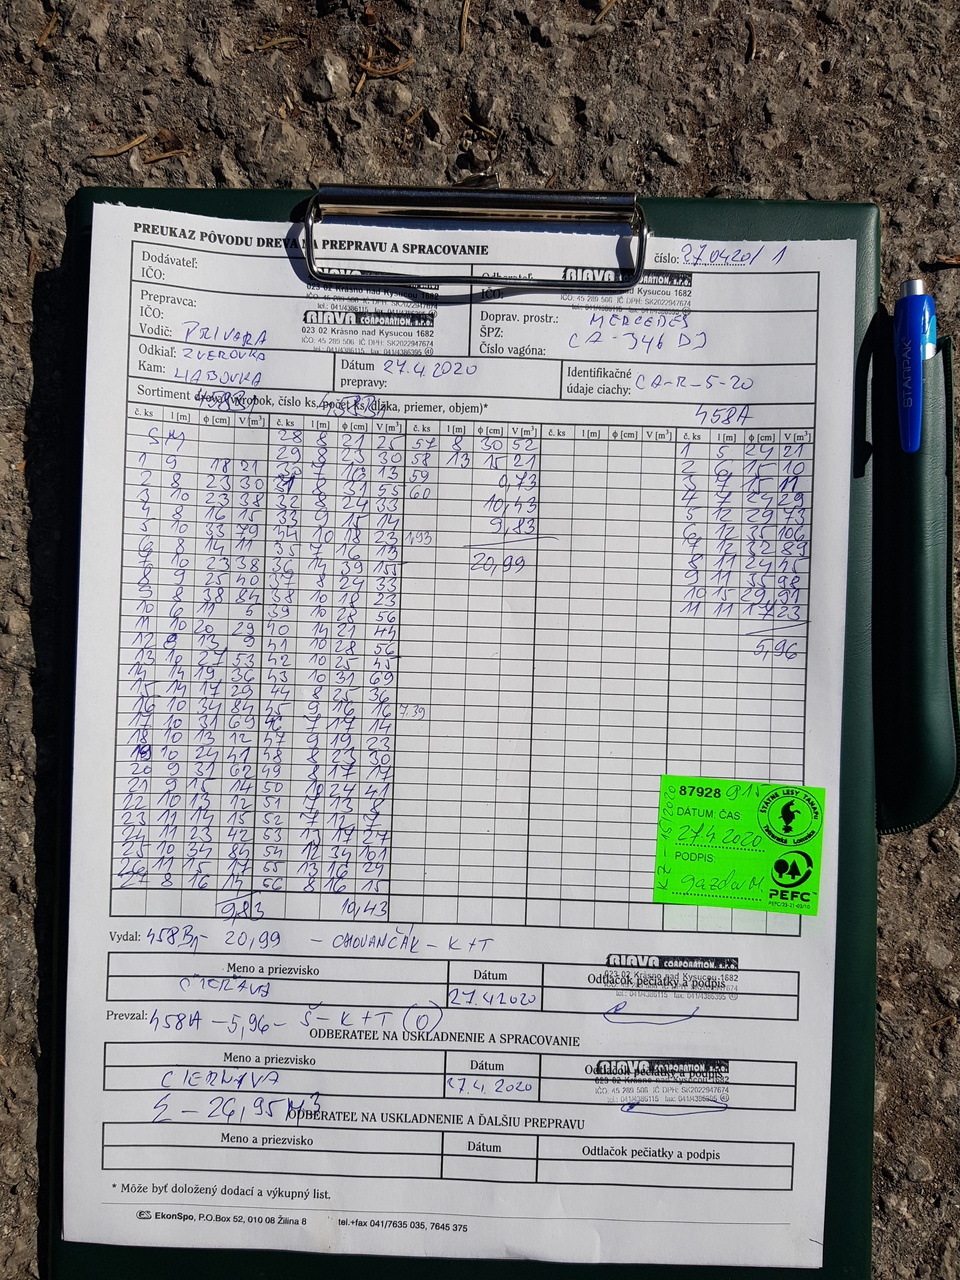 PREUKAZ PÔVODU DREVA NA PREPRAVU A SPRACOVANIE
číslo: 27.0420/ 1
Dodávateľ:
IČO:
RIAVA CORPORATION, s.r.o.
023 02 Krásno nad Kysucou 1682
IČO: 45 289 506 IČ DPH: SK2022947674
tel.: 041/4386115 fax: 041/4386395
IČO:
RIAVA CORPORATION, s.r.o.
023 02 Krásno nad Kysucou 1682
IČO: 45 289 506 IČ DPH: SK2022947674
Prepravca:
IČO:
Vodič: PRIVARA
RIAVA CORPORATION, s.r.o.
023 02 Krásno nad Kysucou 1682
IČO: 45 289 506 IČ DPH: SK2022947674
tel.: 041/4386115 fax: 041/4386395
Doprav. prostr.: MERCEDES
ŠPZ: CA-346 DJ
Číslo vagóna:
Odkiaľ: ZVEROVKA
Kam: HABOVKA
Dátum prepravy: 27.4.2020
Identifikačné údaje ciachy: CA-R-5-20
Sortiment dreva (výrobok, číslo ks, počet ks, dĺžka, priemer, objem)*
458A
č. ks l [m] ϕ [cm] V [m³] č. ks l [m] ϕ [cm] V [m³] č. ks l [m] ϕ [cm] V [m³] č. ks l [m] ϕ [cm] V [m³] č. ks l [m] ϕ [cm] V [m³]
SM 28 8 21 25 57 8 30 52 1 5 24 21
29 8 23 30 58 13 15 21 2 6 15 10
1 9 18 21 59 0,73 3 15 11
2 8 23 30 31 55 60 4 7 24 29
3 10 23 38 32 8 24 33 10,43 5 12 29 73
4 8 16 15 33 9 15 14 9,83 6 12 35 106
5 10 33 79 34 10 18 23 1,93 7 12 32 89
6 8 14 11 35 7 16 13 20,99 8 11 24 45
7 10 23 38 36 14 39 155 9 11 35 98
8 9 25 40 37 8 24 33 10 15 29 91
9 8 38 84 38 10 18 23 11 11 17 23
10 6 11 5 39 10 28 56
11 10 20 29 40 14 21 44 5,96
12 9 13 9 41 10 28 56
13 10 27 53 42 10 25 45
14 14 19 36 43 10 31 69
15 14 17 29 44 8 25 36
16 10 34 84 45 9 16 16 7.39
17 10 31 69 46 7 17 14
18 10 13 12 47 9 19 23
19 10 24 41 48 8 23 30
20 9 31 62 49 8 17 17
21 9 15 14 50 10 24 41
22 10 13 12 51 7 13 8
23 11 14 15 52 7 12 7
24 11 23 42 53 13 17 27
25 10 34 84 54 12 34 101
26 11 15 17 55 13 16 24
27 8 16 14 56 8 16 15
9,83 10,43
87928 915
DÁTUM: ČAS:
27.4.2020
PODPIS:
ŠTÁTNE LESY TANAPU
Tatranská Lomnica
PEFC™
Vydal: 458B1- 20,99 - CHOVANČÁK - K+T
Meno a priezvisko Dátum Odtlačok pečiatky a podpis
27.4.2020
RIAVA CORPORATION, s.r.o.
023 02 Krásno nad Kysucou 1682
IČO: 45 289 506 IČ DPH: SK2022947674
tel.: 041/4386115 fax: 041/4386395
Prevzal: 458A -5,96- Š-K+T (O)
ODBERATEĽ NA USKLADNENIE A SPRACOVANIE
Meno a priezvisko Dátum Odtlačok pečiatky a podpis
27.4.2020
RIAVA CORPORATION, s.r.o.
023 02 Krásno nad Kysucou 1682
IČO: 45 289 506 IČ DPH: SK2022947674
tel.: 041/4386115 fax: 041/4386395
Σ - 26,95 M3
ODBERATEĽ NA USKLADNENIE A ĎALŠIU PREPRAVU
Meno a priezvisko Dátum Odtlačok pečiatky a podpis
* Môže byť doložený dodací a výkupný list.
EkonSpo, P.O.Box 52, 010 08 Žilina 8 tel.+fax 041/7635 035, 7645 375
STARPAK